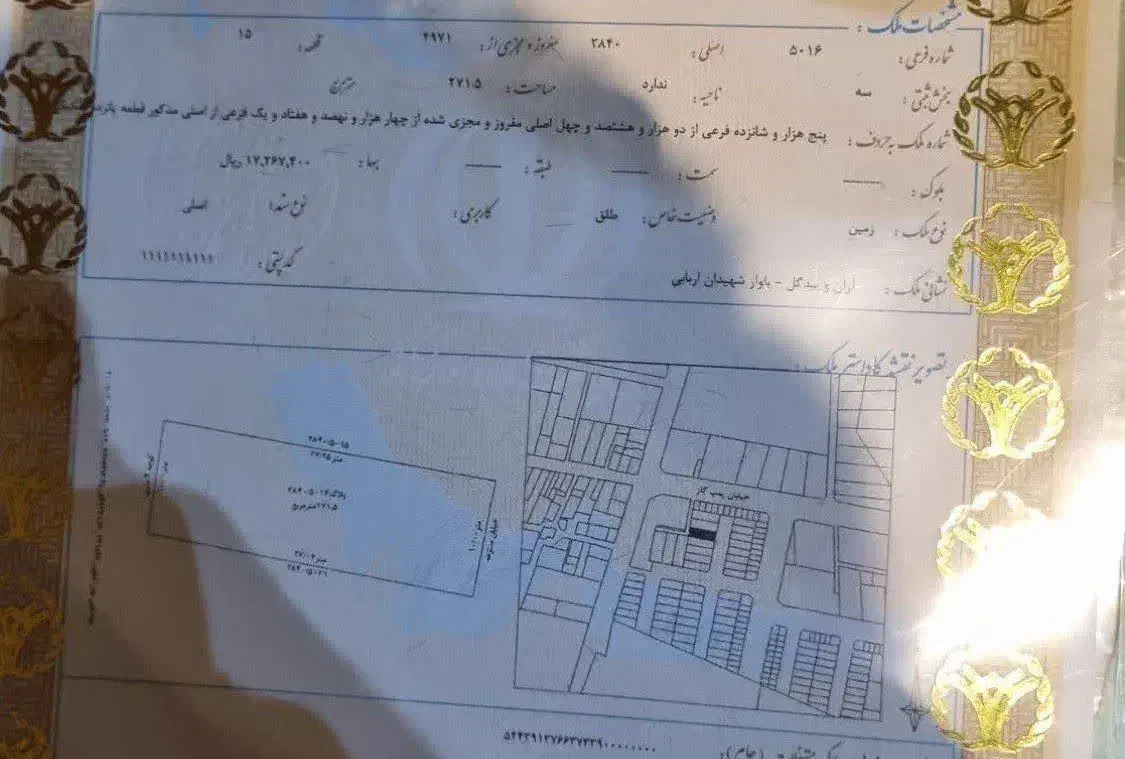 مشخصات ملک :
شماره فرعی : ۵۰۱۶ اصلی : ۲۸۴۰ مفروز و مجزی از : ۴۹۷۱ قطعه : ۱۵
بخش ثبتی : سه ناحیه : ندارد مساحت : ۲۷۱.۵ مترمربع
شماره ملک به حروف : پنج هزار و شانزده فرعی از دو هزار و هشتصد و چهل اصلی مفروز و مجزی شده از چهار هزار و نهصد و هفتاد و یک فرعی از اصلی مذکور قطعه پانزدهم
بلوک : سمت : طبقه : بها : ۱۷,۲۶۷,۴۰۰ ریال
نوع ملک : زمین وضعیت خاص : طلق کاربری : نوع سند : اصلی
نشانی ملک : آران و بیدگل - بلوار شهیدان اربابی کدپستی :
تصویر نقشه کاداستر ملک :
خیابان پمپ گاز
۲۸۴۰/۵۰۱۵
۲۷/۲۵ متر
پلاک ۲۸۴۰/۵۰۱۶
۲۷۱.۵ مترمربع
۲۷/۰۴ متر
۲۸۴۰/۵۰۲۱
۵۴۴۳۹۱۳۷۶۶۳۷۳۳۹۰۰۰۰۰۰۰۰